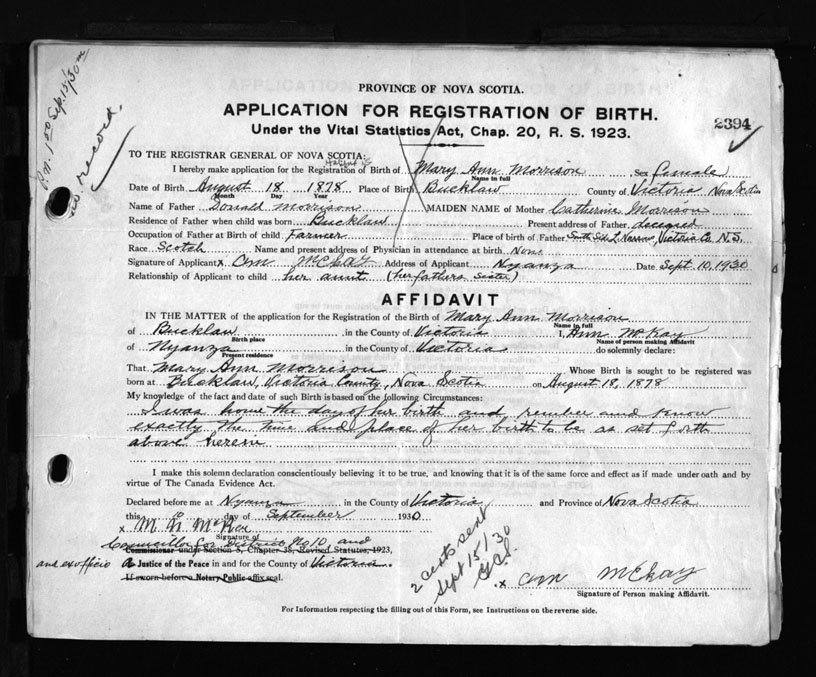 P.N. 1.50 Sep. 15/30
no record.
PROVINCE OF NOVA SCOTIA.
APPLICATION FOR REGISTRATION OF BIRTH.
2394
Under the Vital Statistics Act, Chap. 20, R. S. 1923.
TO THE REGISTRAR GENERAL OF NOVA SCOTIA:
I hereby make application for the Registration of Birth of Mary Ann Morrison Sex female
Name in full
Date of Birth August 18 1878 Place of Birth Bucklaw County of Victoria Nova Scotia
Month Day Year
Name of Father Donald Morrison MAIDEN NAME of Mother Catherine Morrison
Residence of Father when child was born Bucklaw Present address of Father deceased
Occupation of Father at Birth of child Farmer Place of birth of Father South Side L. Narrows Victoria Co N.S.
Race Scotch Name and present address of Physician in attendance at birth None
Signature of Applicant x Ann McKay Address of Applicant Nyanza Date Sept 10, 1930
Relationship of Applicant to child her aunt (her fathers sister)
AFFIDAVIT
IN THE MATTER of the application for the Registration of the Birth of Mary Ann Morrison
Name in full
of Bucklaw in the County of Victoria I, Ann McKay
Birth place Name of person making Affidavit
of Nyanza in the County of Victoria do solemnly declare:
Present residence
That Mary Ann Morrison Whose Birth is sought to be registered was
born at Bucklaw, Victoria County, Nova Scotia on August 18, 1878
My knowledge of the fact and date of such Birth is based on the following Circumstances:
I was home the day of her birth and and know
exactly the time and place of her birth to be as set forth
above herein
I make this solemn declaration conscientiously believing it to be true, and knowing that it is of the same force and effect as if made under oath and by
virtue of The Canada Evidence Act.
Declared before me at Nyanza in the County of Victoria and Province of Nova Scotia
this 10 day of September 1930
Signature of
Councillor for District No 10 and
Commissioner under Section 8, Chapter 38, Revised Statutes, 1923,
and exofficio A Justice of the Peace in and for the County of Victoria.
If sworn before a Notary Public affix seal.
2 certs sent
Sept 15/30
x Ann McKay
Signature of Person making Affidavit.
For Information respecting the filling out of this Form, see Instructions on the reverse side.